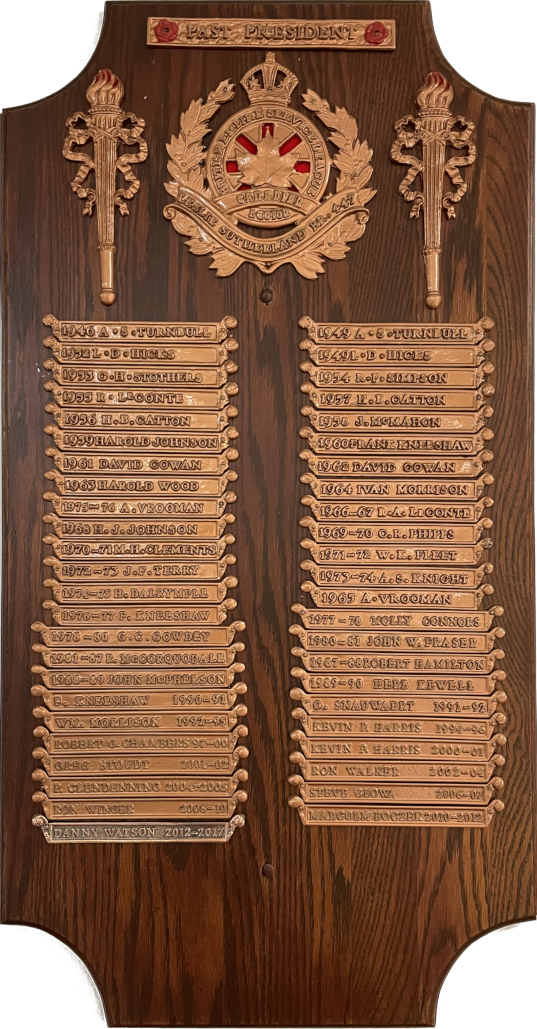 PAST PRESIDENT
BRITISH EMPIRE SERVICE LEAGUE
CANADIAN
LEGION
LESLIE SUTHERLAND BR. 447
1946 A·S·TURNBULL
1952 L·D·HICKS
1953 G·H·STOTHERS
1955 R·LECONTE
1956 H.B.CATTON
1959 HAROLD JOHNSON
1961 DAVID COWAN
1963 HAROLD WOOD
1975-76 A.VROOMAN
1968 H.J.JOHNSON
1970-71 M.H.CLEMENTS
1972-73 J.F.TERRY
1974-75 H.DALRYMPLE
1976-77 F.KNEESHAW
1978-80 G.G.GOWDEY
1981-87 R.MCCORQUODALE
1988-89 JOHN MCPHERSON
F. KNEESHAW 1990-91
WM. MORISSON 1992-93
ROBERT G. CHAMBERS 97-00
GREG STOUDT 2001-02
P. CLENDENNING 2004-2005
RON WINGER 2008-10
DANNY WATSON 2012-2017
1949 A·S·TURNBULL
1949 L·D·HICKS
1954 R·P·SIMPSON
1957 H.B.CATTON
1958 J.MCMAHON
1960 FRANK KNEESHAW
1962 DAVID COWAN
1964 IVAN MORRISON
1966-67 R·A·LECONTE
1969-70 C.R.PHIPPS
1971-72 W.K.FLEET
1973-74 A.S.KNIGHT
1965 A·VROOMAN
1977-78 MOLLY CONNORS
1980-81 JOHN W.FRASER
1987-88 ROBERT HAMILTON
1989-90 HERB KEWELL
O. SNAUWAERT 1991-92
KEVIN R HARRIS 1994-96
KEVIN R HARRIS 2000-01
RON WALKER 2002-04
STEVE GLOWA 2006-07
MALCOLM BOCZEK 2010-2012